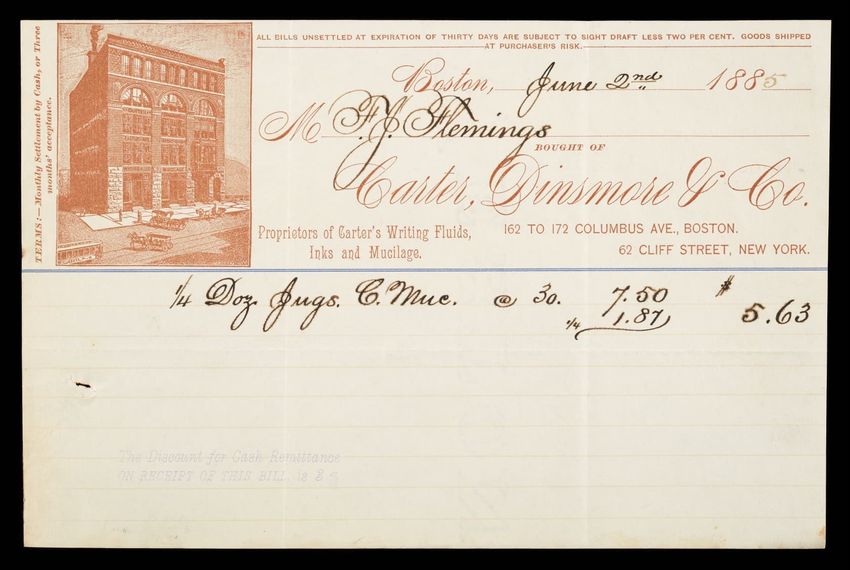 TERMS:—Monthly Settlement by Cash, or Three
months' acceptance.
ALL BILLS UNSETTLED AT EXPIRATION OF THIRTY DAYS ARE SUBJECT TO SIGHT DRAFT LESS TWO PER CENT. GOODS SHIPPED
AT PURCHASER'S RISK.
Boston, June 2nd 1885
M F. J. Flemings
BOUGHT OF
Carter, Dinsmore & Co.
Proprietors of Carter's Writing Fluids,
Inks and Mucilage.
162 TO 172 COLUMBUS AVE., BOSTON.
62 CLIFF STREET, NEW YORK.
1/4 Doz Jugs. C. Muc. @ 30. 7.50 $
1/4 1.87 5.63
The Discount for Cash Remittance
ON RECEIPT OF THIS BILL, is